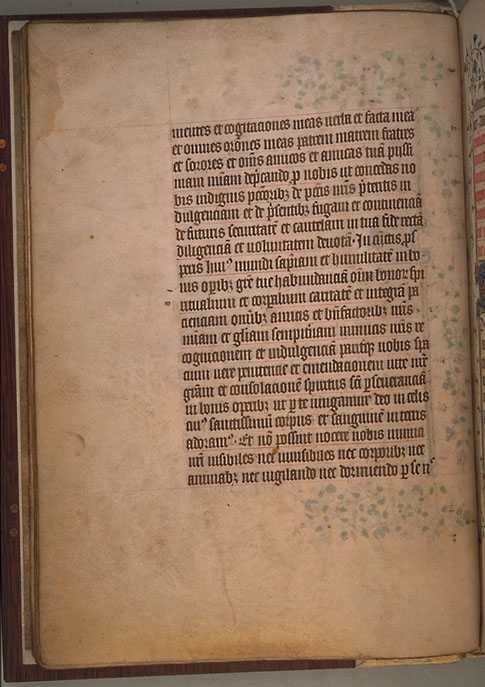 mentes et cogitaciones meas uerba et facta mea
et omnes orōnes meas patrem matrem fratres
et sorores et om̄s amicos et amicas tuā pijssi
mam m̄iam dep̄cando p nobis ut concedas no
bis indignis pccōribꝫ de pctīs nr̄is p̄teritis in
dulgenciam et de p̄sentibꝫ fugam et continenciā
de futuris securitatē et cautelam in tua fide rectā
diligenciā et uoluntatem deuotā. In cunctis ꝓs
peris huiꝰ mundi sapīam et humilitatē in bo
nis opibꝫ gr̄e tue habundanciā oīm bonor spi
ritualium et corpalium caritatē et integrā pa
cienciam omībꝫ amicis et bn̄factoribꝫ nr̄is
m̄iam et gliam sempit̄nam inimicis nr̄is re
cognicionem et indulgenciā panterꝫ nobis spa
cium uere penitencie et emendacionem uite nr̄e
grām et consolacionē spiritus sc̄i pseueranciā
in bonis operibꝫ ut p te iungamur deo in celis
cuiꝰ sanctissimū corpus et sanguinē in terris
adoramꝰ. Et nō possint nocere nobis inimici
nr̄i uisibiles nec inuisibiles nec corporibꝫ nec
animabꝫ nec uigilando nec dormiendo p se nꝰ